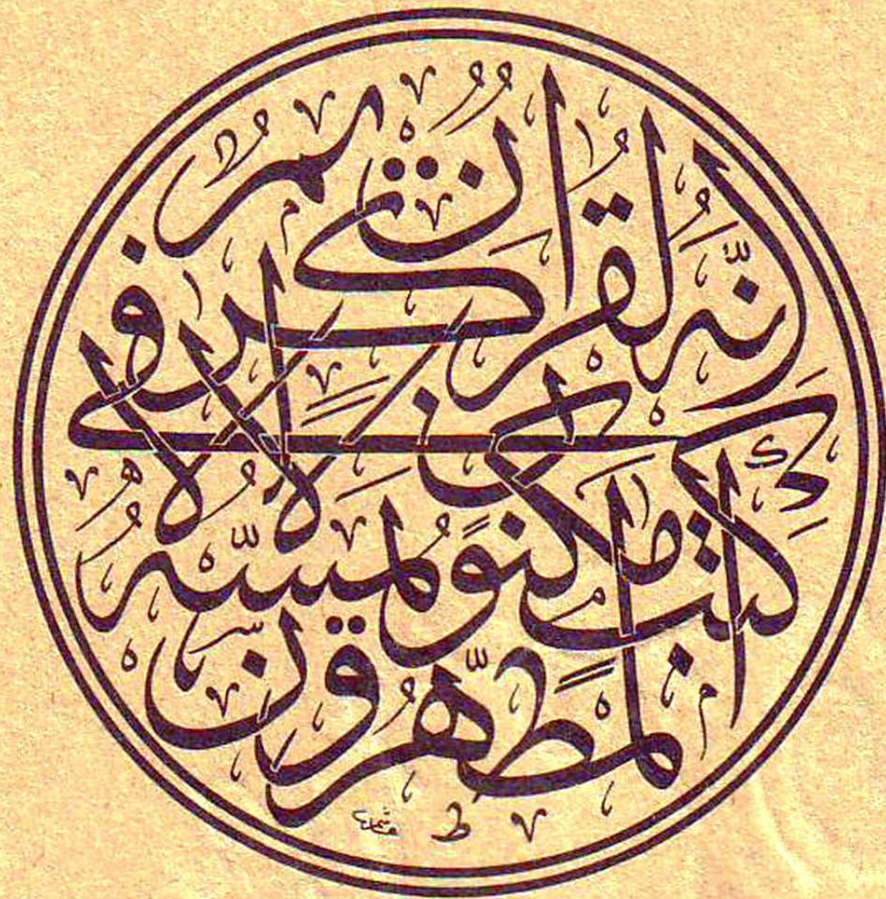 إِنَّهُ لَقُرْآنٌ كَرِيمٌ فِي
كِتَابٍ مَكْنُونٍ لَا يَمَسُّهُ إِلَّا
الْمُطَهَّرُونَ